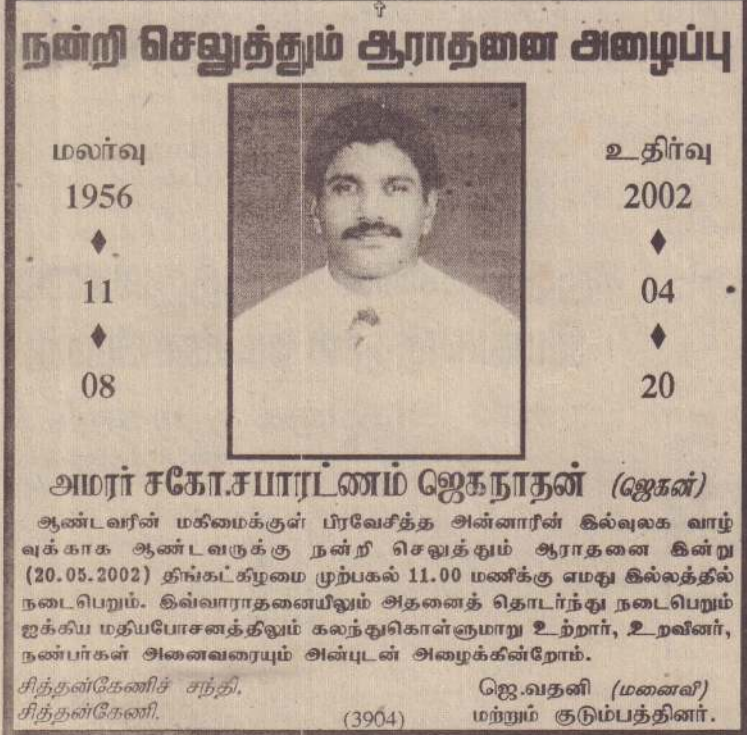 நன்றி செலுத்தும் ஆராதனை அழைப்பு
மலர்வு
1956
11
08
உதிர்வு
2002
04
20
அமரர் சகோ.சபாரட்ணம் ஜெகநாதன் (ஜெகன்)
ஆண்டவரின் மகிமைக்குள் பிரவேசித்த அன்னாரின் இவ்வுலக வாழ்
வுக்காக ஆண்டவருக்கு நன்றி செலுத்தும் ஆராதனை இன்று
(20.05.2002) திங்கட்கிழமை முற்பகல் 11.00 மணிக்கு எமது இல்லத்தில்
நடைபெறும். இவ்வாராதனையிலும் அதனைத் தொடர்ந்து நடைபெறும்
ஐக்கிய மதியபோசனத்திலும் கலந்துகொள்ளுமாறு உற்றார், உறவினர்,
நண்பர்கள் அனைவரையும் அன்புடன் அழைக்கின்றோம்.
சித்தன்கேணிச் சந்தி,
சித்தன்கேணி.
(3904)
ஜெ.வதனி (மனைவி)
மற்றும் குடும்பத்தினர்.